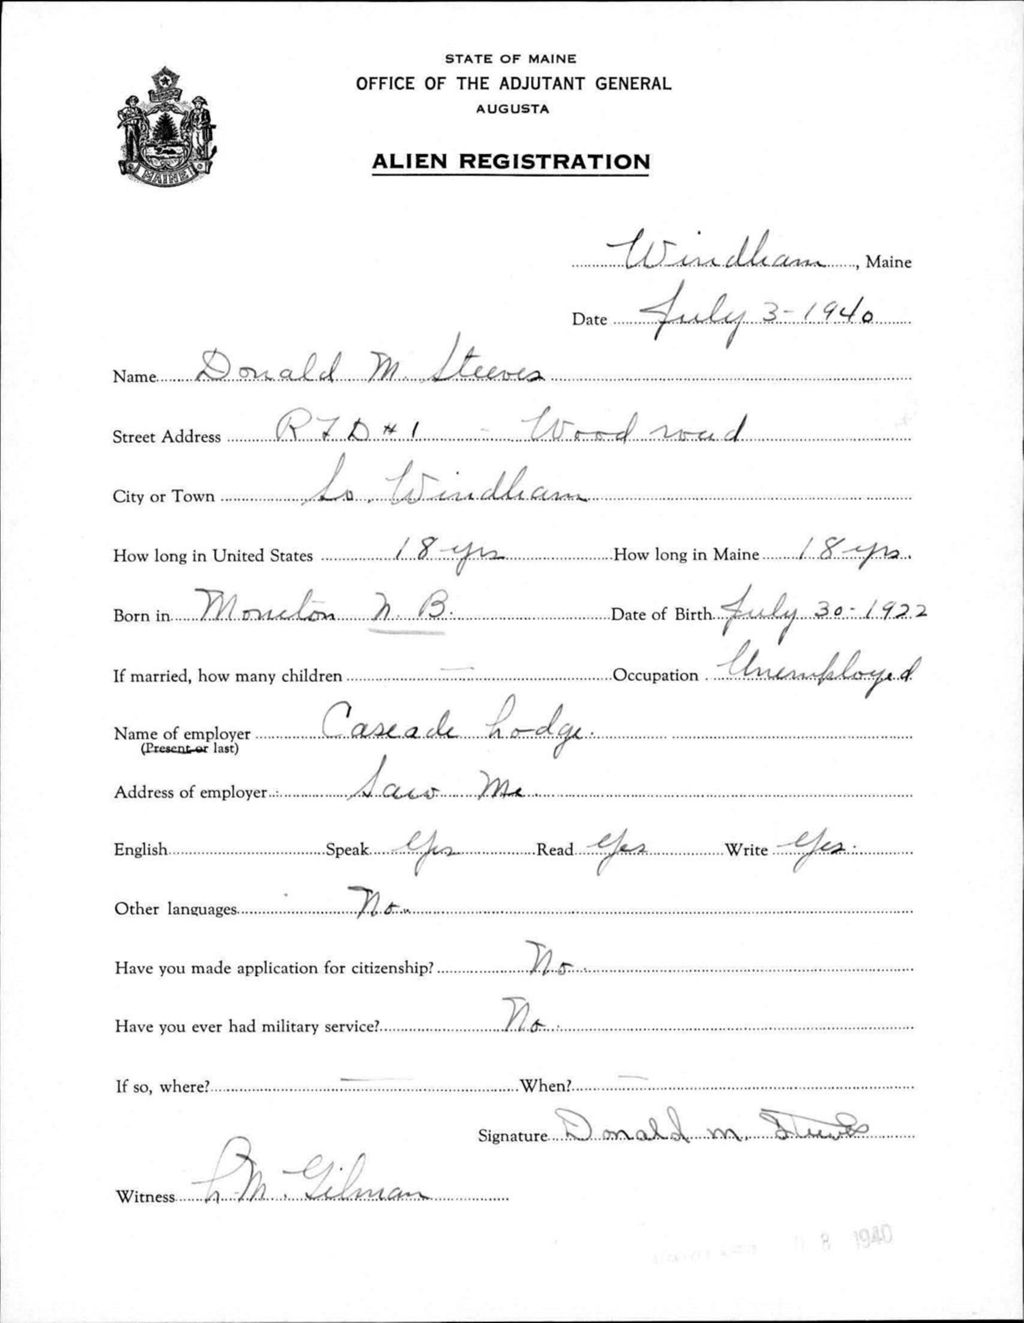 STATE OF MAINE
OFFICE OF THE ADJUTANT GENERAL
AUGUSTA
ALIEN REGISTRATION
MAINE
Windham, Maine
Date July 3-1940
Name Donald M. Steeves
Street Address RFD #1 - Wood road
City or Town So. Windham
How long in United States 18 yrs How long in Maine 18 yrs.
Born in Moncton N. B. Date of Birth July 30-1922
If married, how many children — Occupation Unemployed
Name of employer Cascade Lodge.
(Present or last)
Address of employer Saco Me.
English Speak Yes Read Yes Write Yes.
Other languages No.
Have you made application for citizenship? No.
Have you ever had military service? No.
If so, where? — When? —
Signature Donald M. Steeves
Witness L. M. Gilman
8 1940